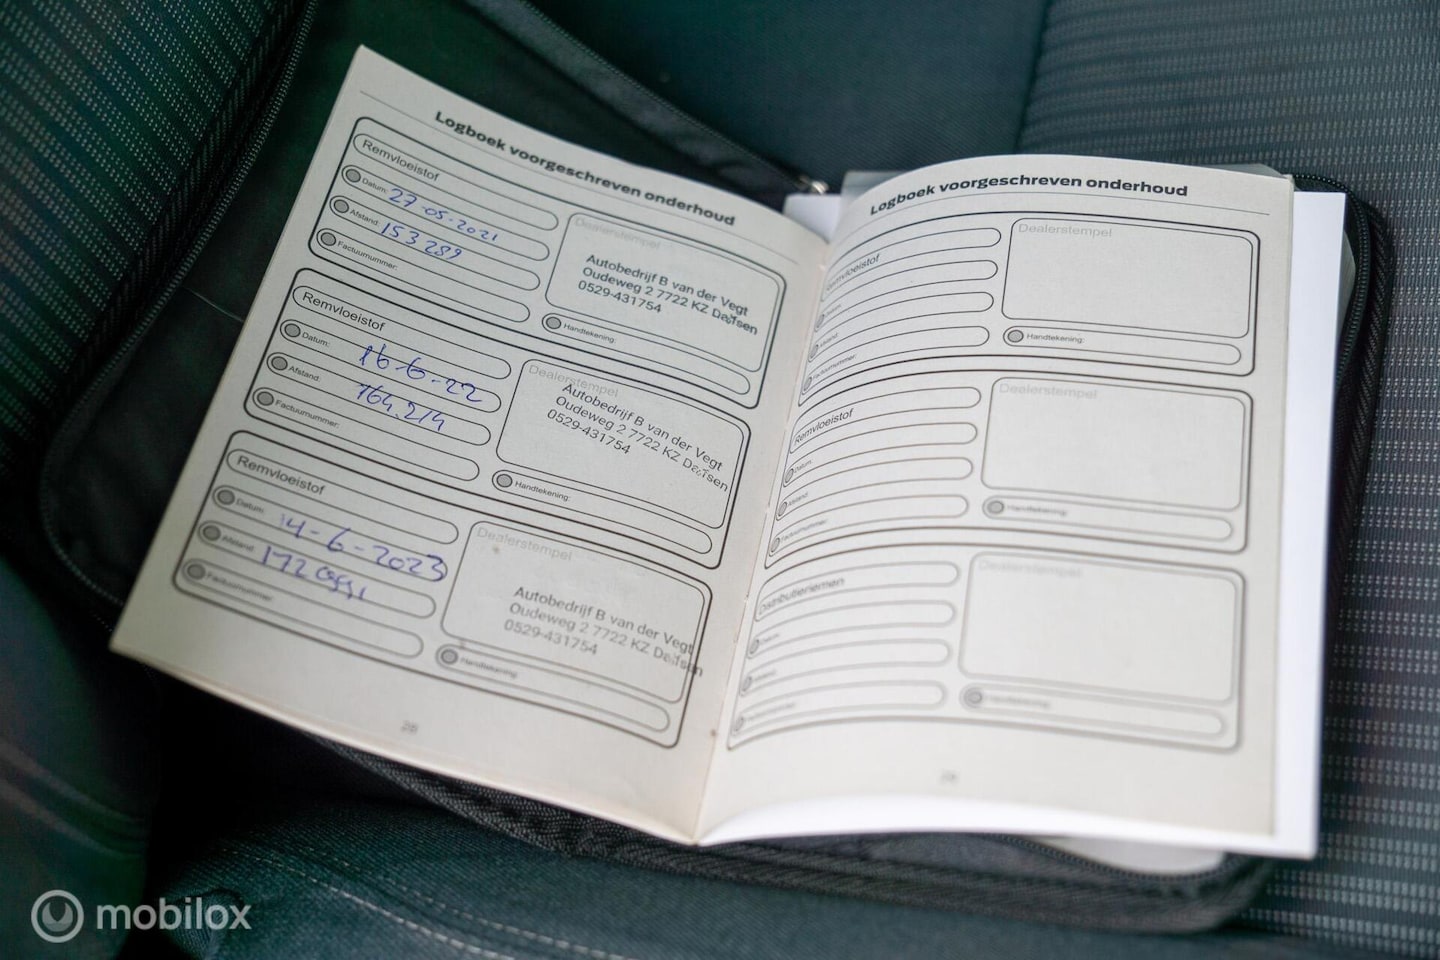 Logboek voorgeschreven onderhoud
Remvloeistof
Datum: 27-05-2021
Afstand: 153289
Factuurnummer:
Dealerstempel
Autobedrijf B van der Vegt
Oudeweg 2 7722 KZ Dalfsen
0529-431754
Handtekening:
Remvloeistof
Datum: 16-6-22
Afstand: 164.214
Factuurnummer:
Dealerstempel
Autobedrijf B van der Vegt
Oudeweg 2 7722 KZ Dalfsen
0529-431754
Handtekening:
Remvloeistof
Datum: 14-6-2023
Afstand: 172
Factuurnummer:
Dealerstempel
Autobedrijf B van der Vegt
Oudeweg 2 7722 KZ Dalfsen
0529-431754
Handtekening:
Logboek voorgeschreven onderhoud
Remvloeistof
Datum:
Afstand:
Factuurnummer:
Dealerstempel
Handtekening:
Remvloeistof
Datum:
Afstand:
Factuurnummer:
Dealerstempel
Handtekening:
Distributieriemen
Datum:
Afstand:
Dealerstempel
Handtekening:
mobilox